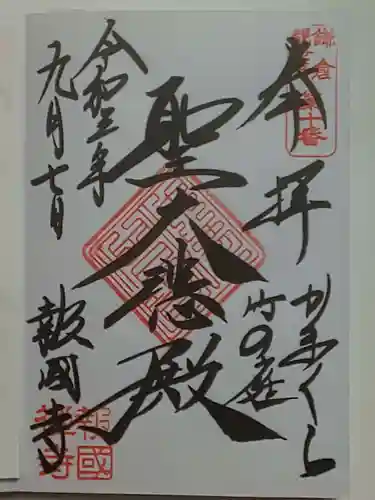 奉拝
かまくら
竹の庭
聖大悲殿
令和三年
九月七日
報國寺
鎌倉
第十番
報國
寺